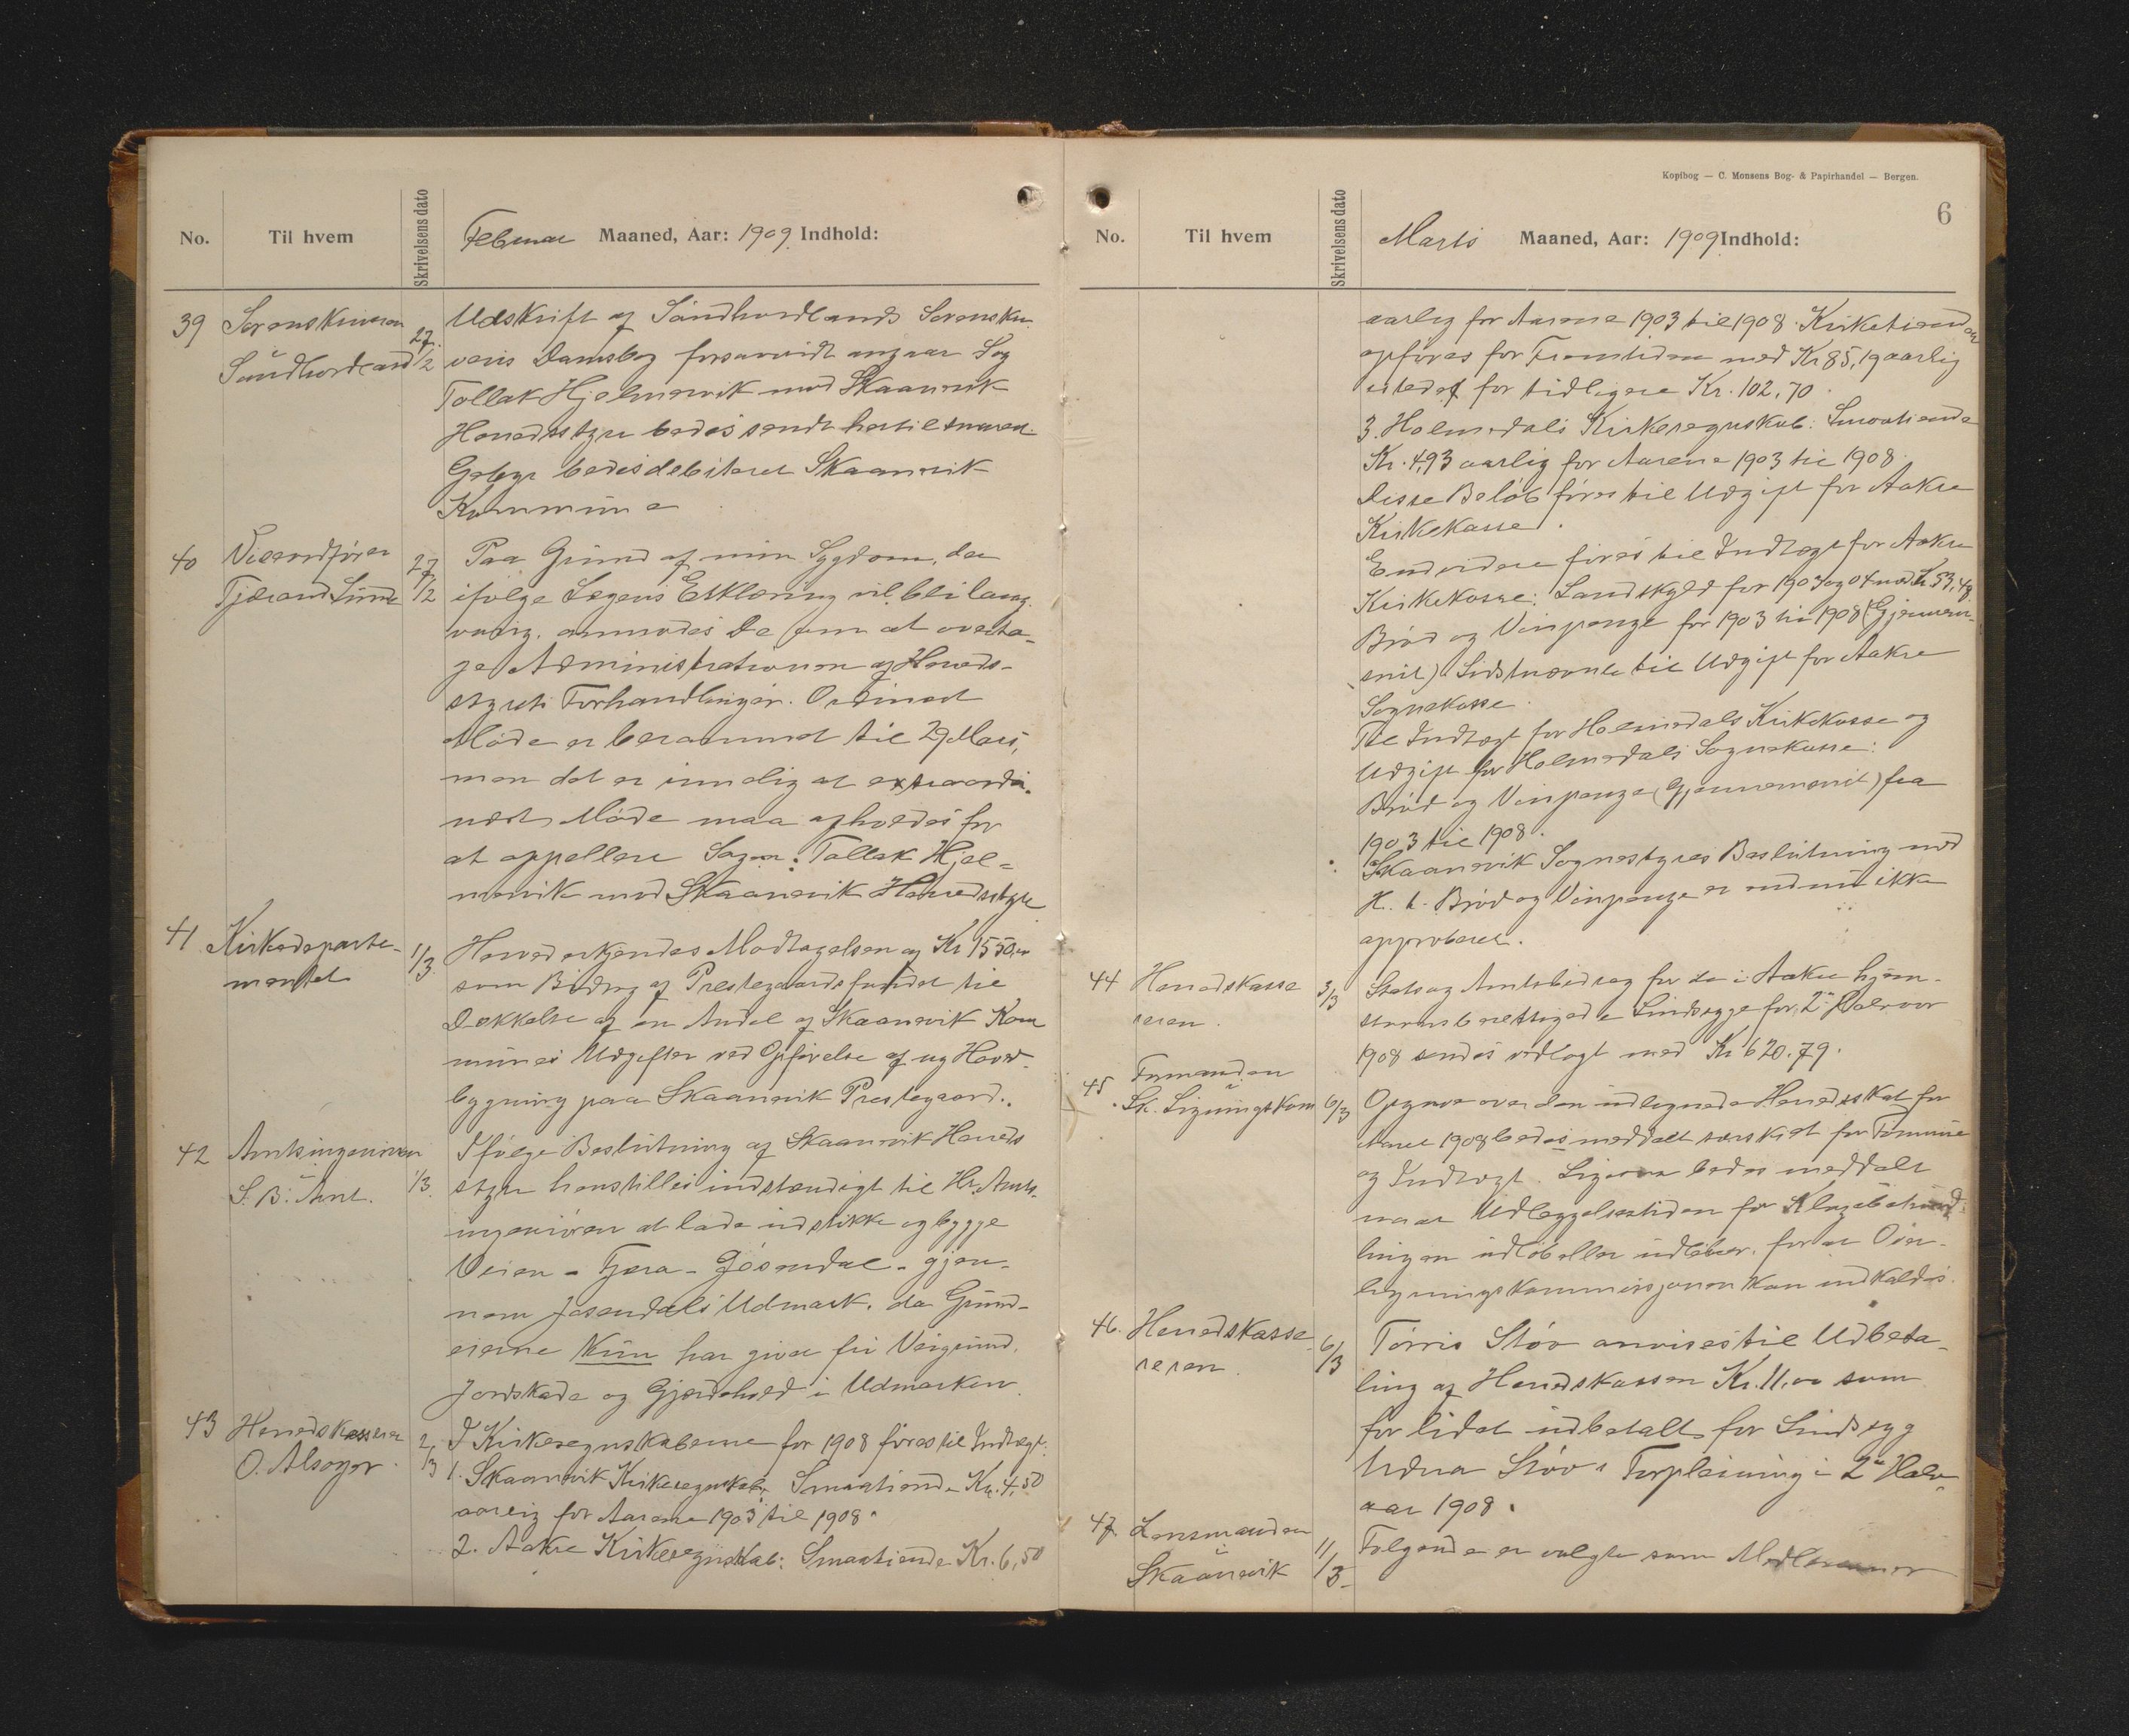 No. Til hvem Skrivelsens dato Februar Maaned, Aar: 1909. Indhold:
39 Sorenskriveren Udskrift af Søndhordlands Sorenskri-
Søndhordland 27/2 veris Domsbog forsaavidt angaar Sag
Tollak Hjelmervik mod Skaanevik
Herredsstyre bedes sendt hertil snarest.
Gebyr bedes debiteret Skaanevik
Kommune
40 Viceordfører 27/2 Paa Grund af min Sygdom, der
Tjerand Lunde ifølge Lægens Erklæring vil bli lang-
varig, anmodes De om at overta-
ge Administrationen af Herreds-
styrets Forhandlinger. Ordinært
Møde er berammet til 29 Mars,
men det er muelig at extraordi-
nært Møde maa afholdes for
at appellere Sagen: Tollak Hjel-
mervik mod Skaanevik Herredsstyre
41 Kirkedeparte- 1/3 Herved erkjendes Modtagelsen af Kr 1550,00
mentet som Bidrag af Prestegaardsfondet til
Dækkelse af en Andel af Skaanevik Kom
munes Udgifter ved Opførelse af ny Hoved-
bygning paa Skaanevik Prestegaard.
42 Amtsingeniøren Ifølge Beslutning af Skaanevik Herreds
S. B. Amt. 1/3. styre henstilles indstændigt til Hr. Amts-
ingeniøren at lade udstikke og bygge
Veien - Fjæra - Jøsendal - gjen-
nem Jøsendals Udmark, da Grund-
eierne kun har givet fri Veigrund,
Jordskade og Gjærdehold i Udmarken.
43 Herredskasserer 2/3 I Kirkeregnskaberne for 1908 føres til Indtægt:
O. Alsager. 1. Skaanevik Kirkeregnskab: Smaatiende Kr. 4,50
aarlig for Aarene 1903 til 1908.
2. Aakre Kirkeregnskab: Smaatiende Kr. 6,50
Kopibog — C. Monsens Bog- & Papirhandel — Bergen.
6
No. Til hvem Skrivelsens dato Marts Maaned, Aar: 1909 Indhold:
aarlig for Aarene 1903 til 1908. Kirketienden
opføres for Fremtiden med Kr 85,19 aarlig
istedet for tidligere Kr. 102,70.
3. Holmedals Kirkeregnskab: Smaatiende
Kr. 4,93 aarlig for Aarene 1903 til 1908.
Disse Beløb føres til Udgift for Aakre
Kirkekasse.
Endvidere føres til Indtægt for Aakre
Kirkekasse: Landskyld for 1903 og 04 med Kr 33,48.
Brød og Vinpenge for 1903 til 1908 (Gjennem-
snit) Sidstnævnte til Udgift for Aakre
Sognekasse.
Til Indtægt for Holmedals Kirkekasse og
Udgift for Holmedals Sognekasse:
Brød og Vinpenge (Gjennemsnit) fra
1903 til 1908.
Skaanevik Sognestyres Beslutning med
H. t. Brød og Vinpenge er endnu ikke
approberet.
44 Herredskasse 3/3 Stats og Amtsbidrag for de i Aakre hjem-
reren. stavnsberettigede Sindssyge for 2det Halvaar
1908 sendes vedlagt med Kr 620.79.
45 Formanden
Sk. Ligningskom 6/3 Opgave over den udlignede Herredsskat for
Aaret 1908 bedes meddelt særskilt for Formue
og Indtægt. Ligesaa bedes meddelt
naar Udlæggelsestiden for Klagebehand-
lingen udløb eller udløber, for at Over-
ligningskommissjonen kan indkaldes.
46. Herredskasse 6/3 Tørris Støv anvises til Udbeta-
reren. ling af Herredskassen Kr. 11,00 som
for lidet udbetalt for Sindssyg
Støvs Forpleining i 2det Halv-
aar 1908.
47. Lensmanden 11/3 Følgende er valgte som Medlemmer
i
Skaanevik